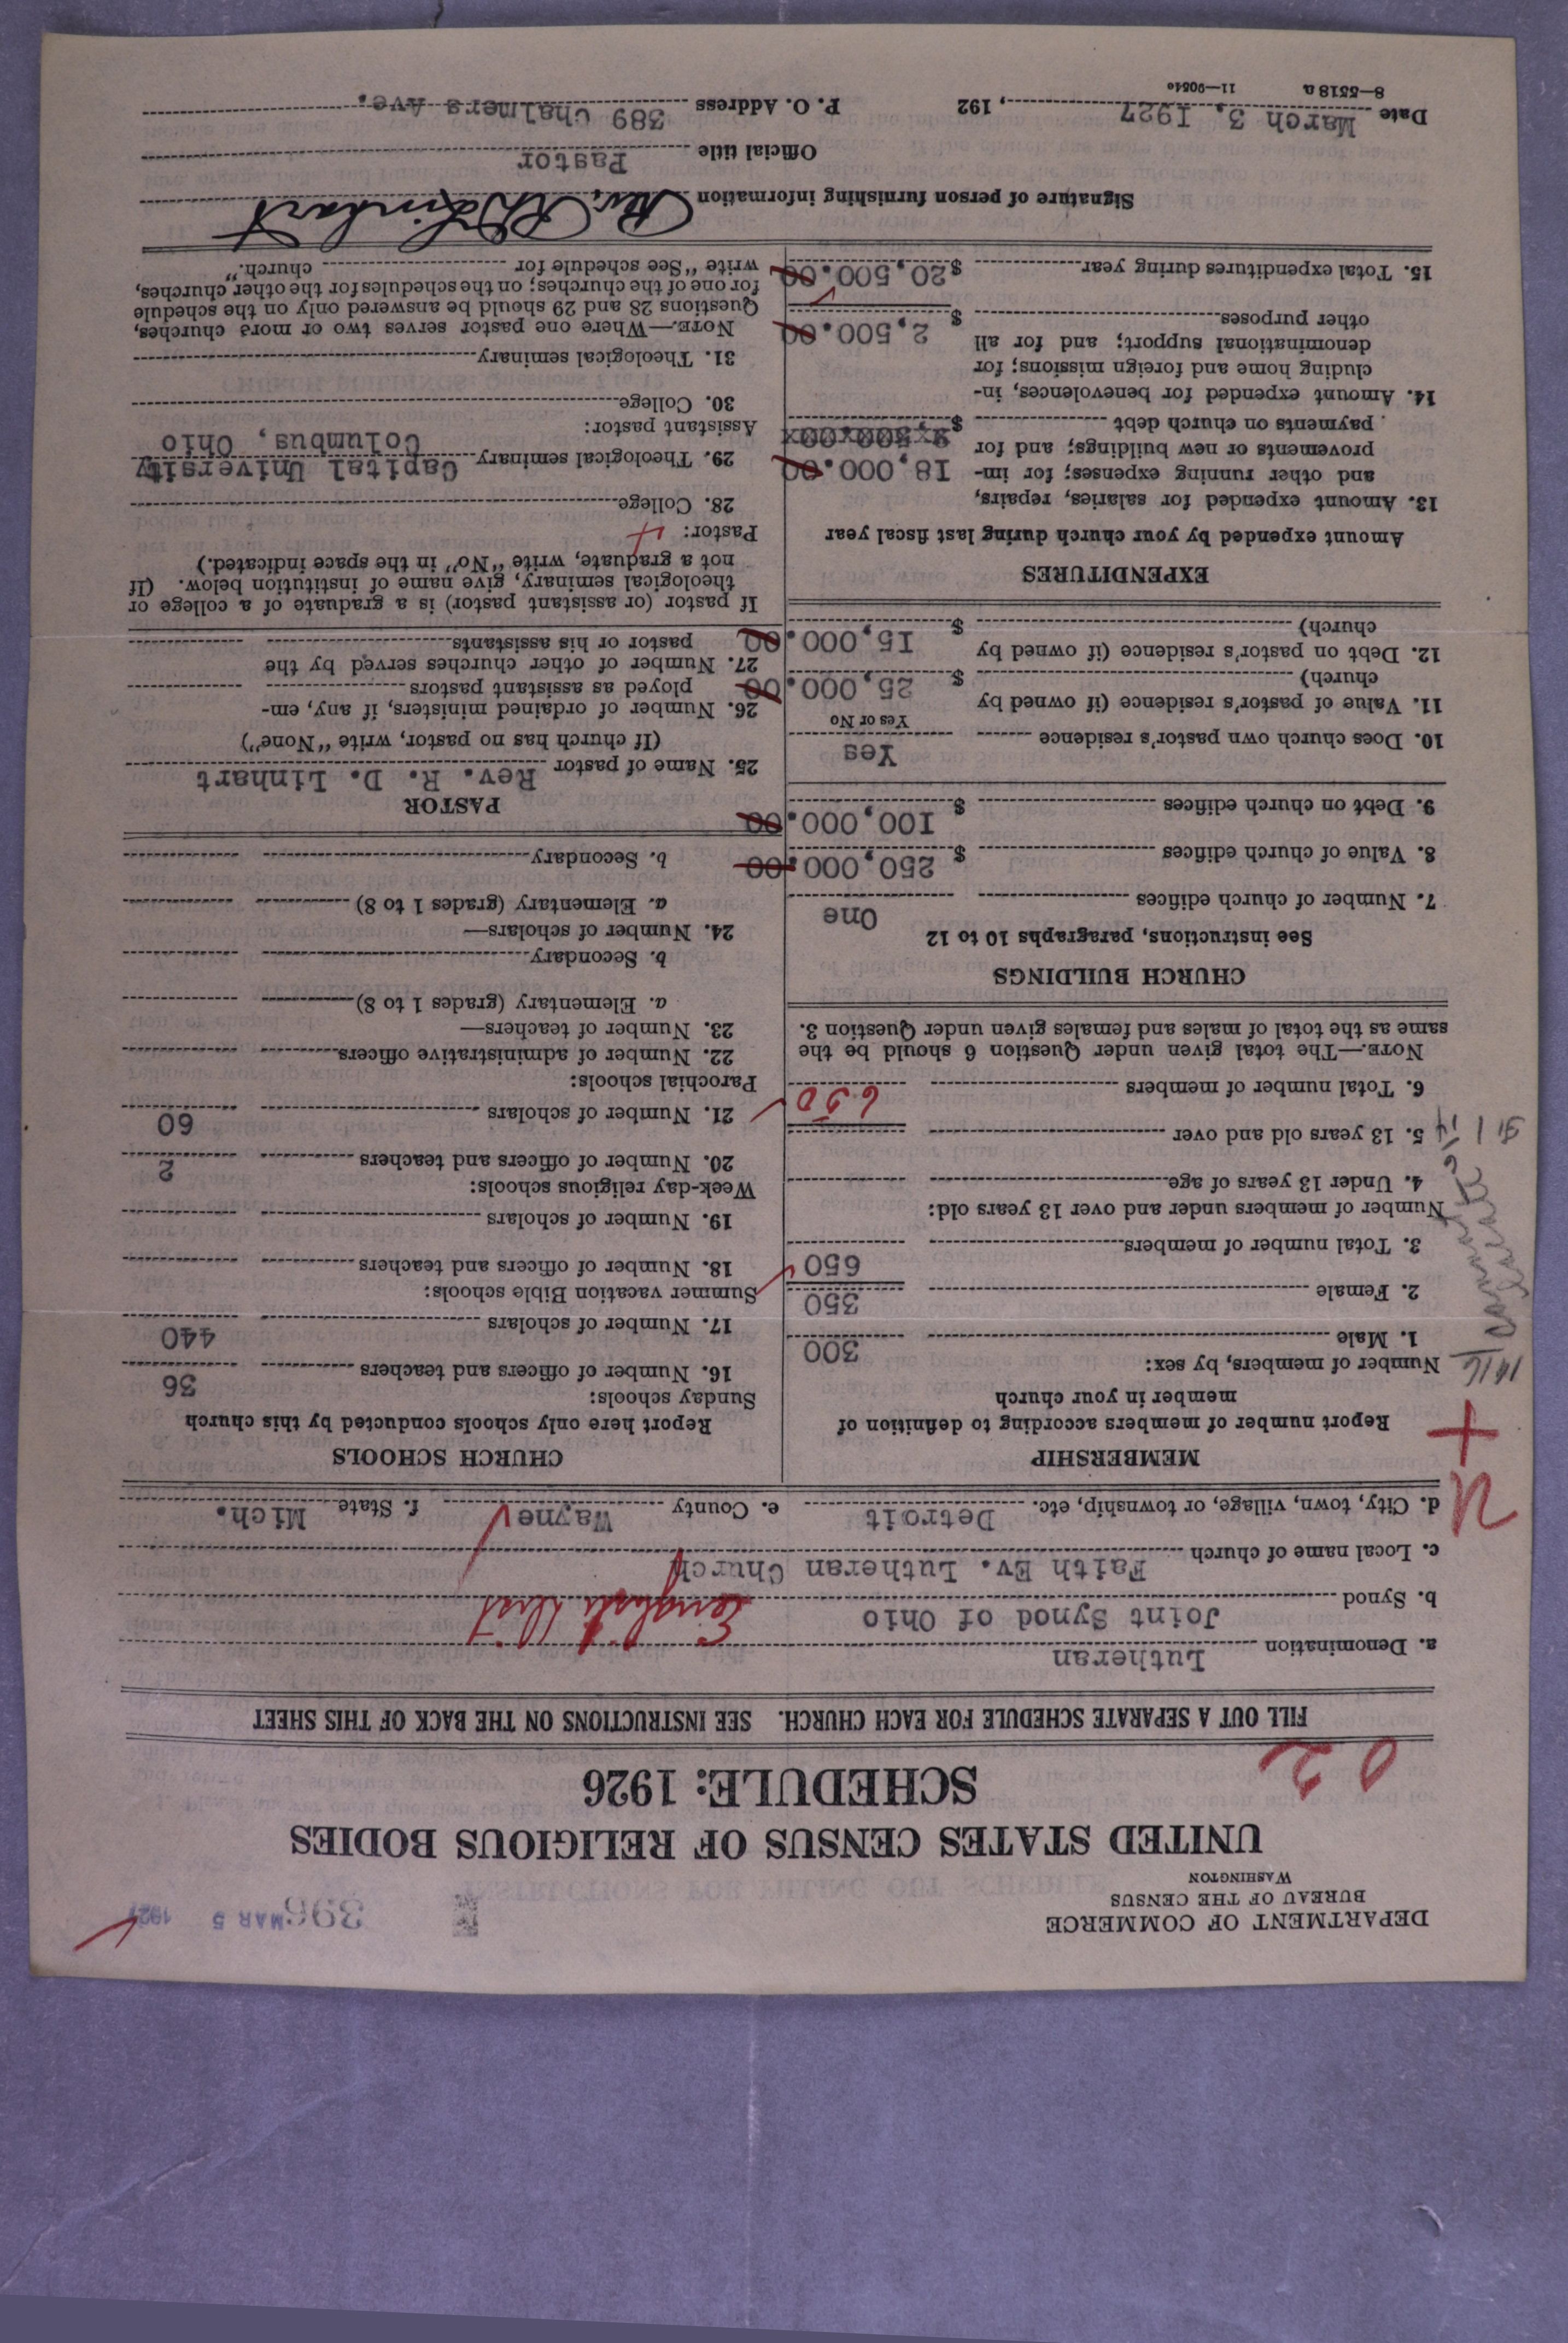 DEPARTMENT OF COMMERCE
BUREAU OF THE CENSUS
WASHINGTON
396
MAR 5 1927
UNITED STATES CENSUS OF RELIGIOUS BODIES
SCHEDULE: 1926
0 2
FILL OUT A SEPARATE SCHEDULE FOR EACH CHURCH. SEE INSTRUCTIONS ON THE BACK OF THIS SHEET
a. Denomination Lutheran
b. Synod Joint Synod of Ohio English Dist
c. Local name of church Faith Ev. Lutheran Church
d. City, town, village, or township, etc. Detroit e. County Wayne f. State Mich.
MEMBERSHIP
Report number of members according to definition of
member in your church
Number of members, by sex:
1. Male 300
2. Female 350
3. Total number of members 650
Number of members under and over 13 years old:
4. Under 13 years of age
5. 13 years old and over
6. Total number of members 650
NOTE.—The total given under Question 6 should be the
same as the total of males and females given under Question 3.
CHURCH BUILDINGS
See instructions, paragraphs 10 to 12
7. Number of church edifices One
8. Value of church edifices $ 250,000.00
9. Debt on church edifices $ 100,000.00
10. Does church own pastor's residence Yes
Yes or No
11. Value of pastor's residence (if owned by
church) $ 25,000.00
12. Debt on pastor's residence (if owned by
church) $ 15,000.00
EXPENDITURES
Amount expended by your church during last fiscal year
13. Amount expended for salaries, repairs,
and other running expenses; for im-
provements or new buildings; and for
payments on church debt $ 18,000.00
14. Amount expended for benevolences, in-
cluding home and foreign missions; for
denominational support; and for all
other purposes $ 2,500.00
15. Total expenditures during year $20,500.00
CHURCH SCHOOLS
Report here only schools conducted by this church
Sunday schools:
16. Number of officers and teachers 36
17. Number of scholars 440
Summer vacation Bible schools:
18. Number of officers and teachers
19. Number of scholars
Week-day religious schools:
20. Number of officers and teachers 2
21. Number of scholars 60
Parochial schools:
22. Number of administrative officers
23. Number of teachers—
a. Elementary (grades 1 to 8)
b. Secondary
24. Number of scholars—
a. Elementary (grades 1 to 8)
b. Secondary
PASTOR
25. Name of pastor Rev. R. D. Linhart
(If church has no pastor, write "None")
26. Number of ordained ministers, if any, em-
ployed as assistant pastors
27. Number of other churches served by the
pastor or his assistants
If pastor (or assistant pastor) is a graduate of a college or
theological seminary, give name of institution below. (If
not a graduate, write "No" in the space indicated.)
Pastor: 4
28. College
29. Theological seminary Capital University
Columbus, Ohio
Assistant pastor:
30. College
31. Theological seminary
NOTE.—Where one pastor serves two or more churches,
Questions 28 and 29 should be answered only on the schedule
for one of the churches; on the schedules for the other churches,
write "See schedule for church."
Signature of person furnishing information Rev. R. D. Linhart
Official title Pastor
Date March 3, 1927, 192 P. O. Address 389 Chalmers Ave.
8—5518 a 11—9051a